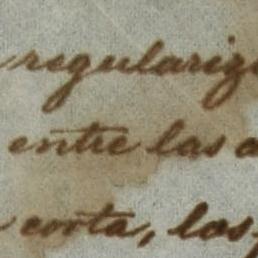 regulariz
entre las a
corta, los